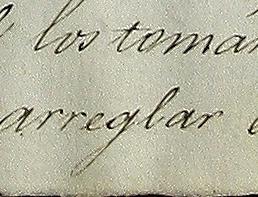 los tomár
arreglar